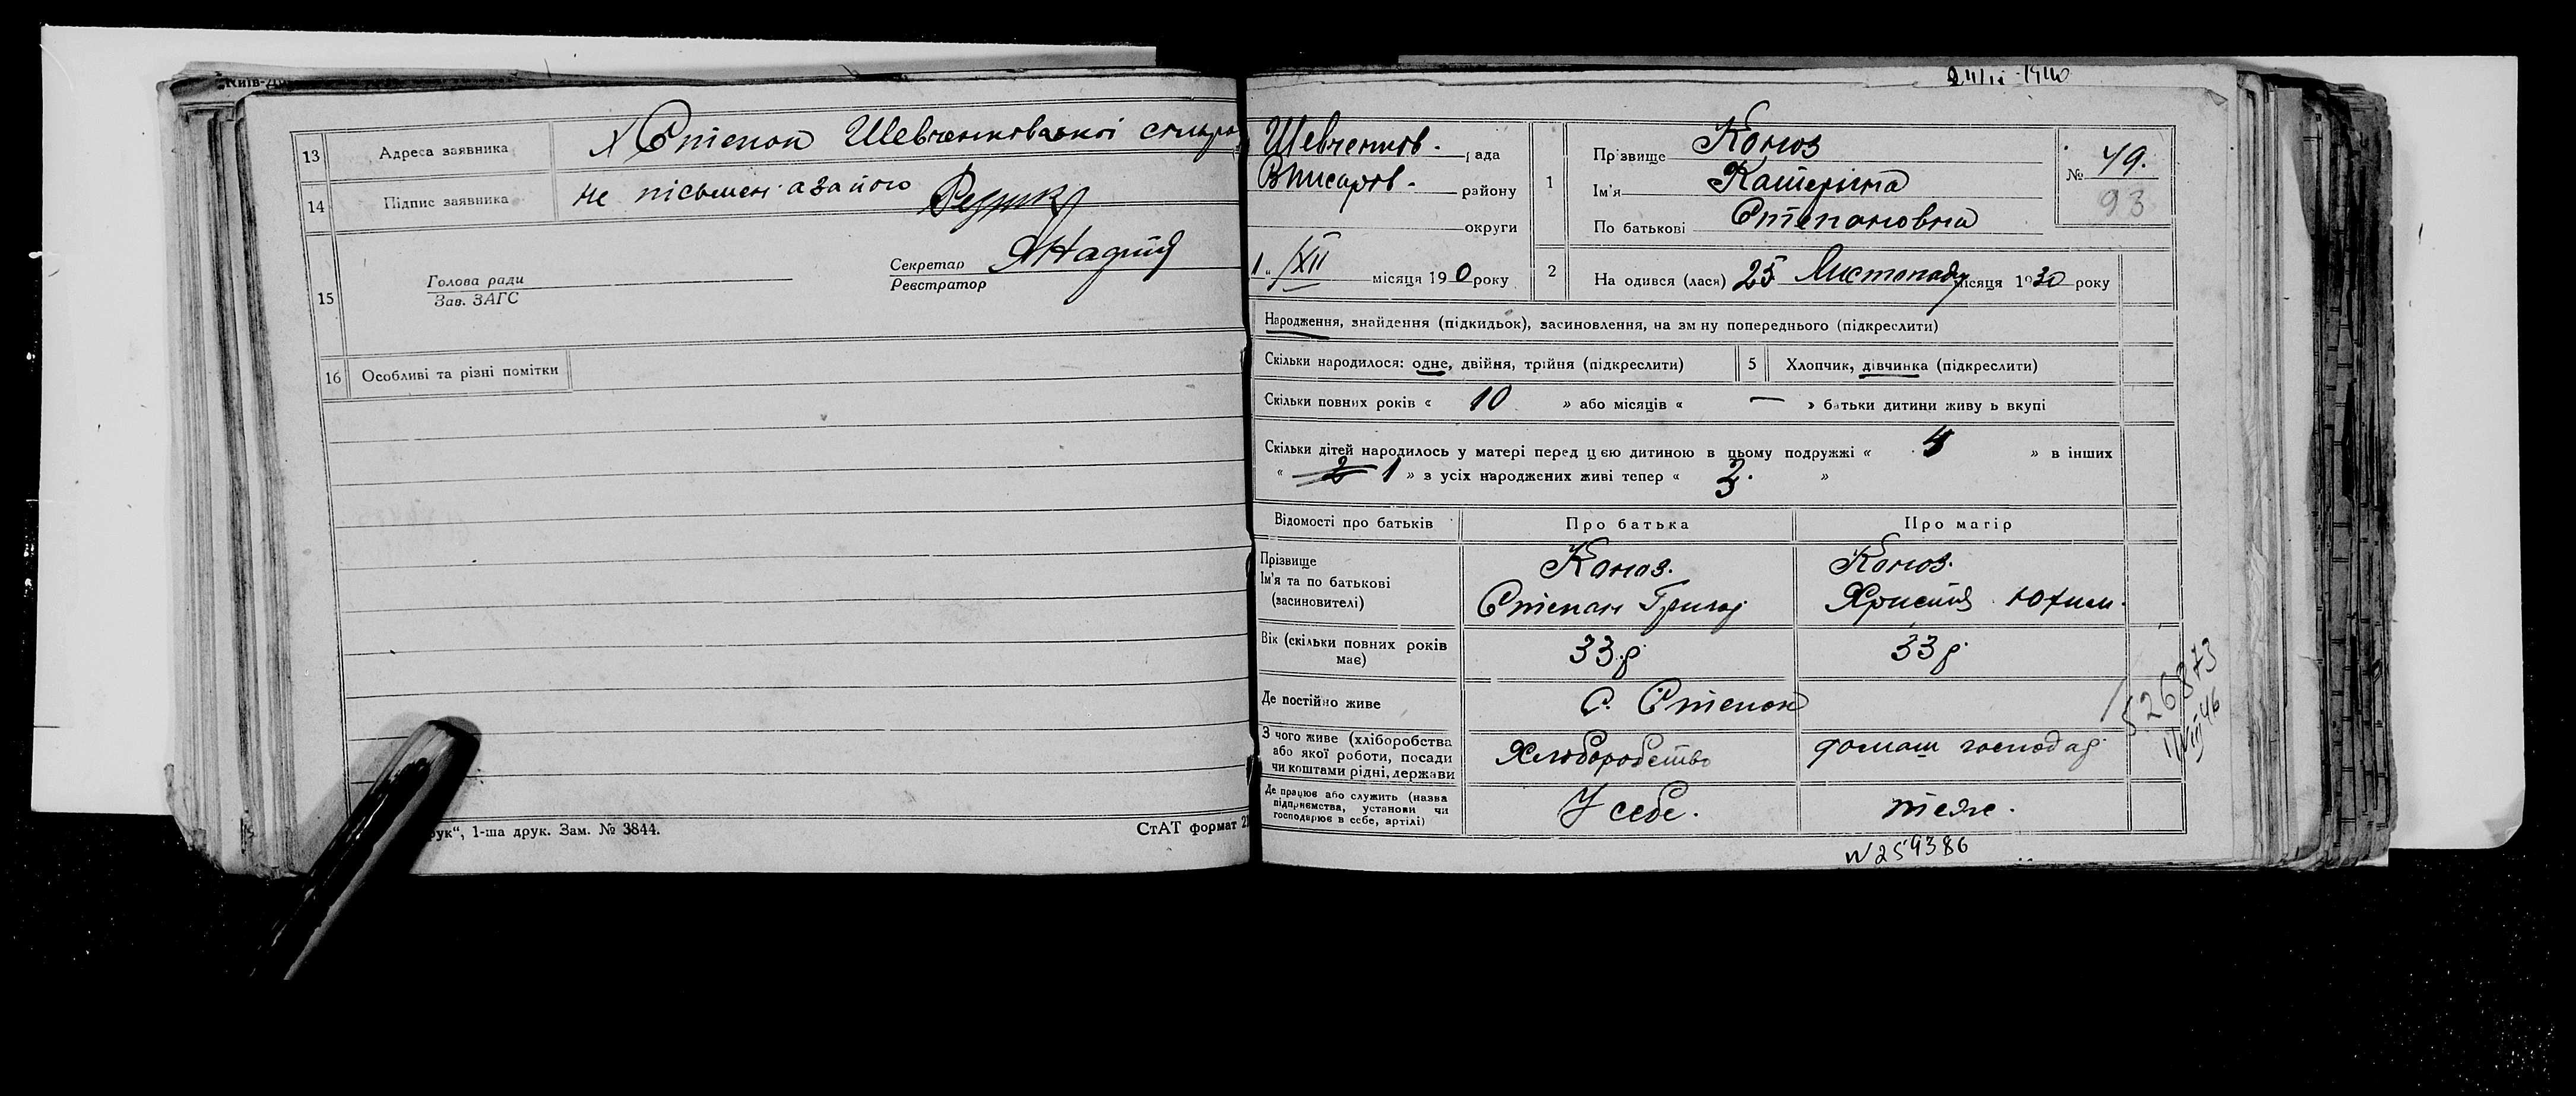 Київ-
13 Адреса заявника х Степок Шевченковської сільра
14 Підпис заявника не пісьмен. а за його Редрик
15 Голова ради
Зав. ЗАГС
Секретар
Реєстратор
16 Особливі та різні помітки
рук“, 1-ша друк. Зам. № 3844.
СтАТ формат 21
24/II-1940
Шевченков. рада
Вписаров. району
округи
1 /XII місяця 190 року
1 Прізвище Конюз
Ім'я Катеріна
По батькові Степановна
№ 49.
93
2 На одився (лася) 25 Листопаду місяця 1930 року
Народження, знайдення (підкидьок), засиновлення, на зм ну попереднього (підкреслити)
Скільки народилося: одне, двійня, трійня (підкреслити) 5 Хлопчик, дівчинка (підкреслити)
Скільки повних років « 10 » або місяців « — » батьки дитини живу ь вкупі
Скільки дітей народилось у матері перед цєю дитиною в цьому подружжі « 4 » в інших
« 2 1 » з усіх народжених живі тепер « 3. »
Відомості про батьків Про батька Про матір
Прізвище
Ім'я та по батькові
(засиновителі)
Конюз. Конюз.
Степан Григор Христия Юхим.
Вік (скільки повних років
має)
33 р. 33 р.
Де постійно живе С. Степок
З чого живе (хліборобства
або якої роботи, посади
чи коштами рідні, держави
Хлюборобство домаш господар.
Де працює або служить (назва
підприємства, установи чи
господарює в себе, артілі)
У себе. теж.
526873
1/VIII 46
N 259386